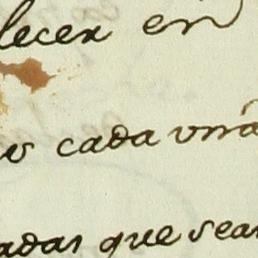 lecer en
cada una
adas que sean